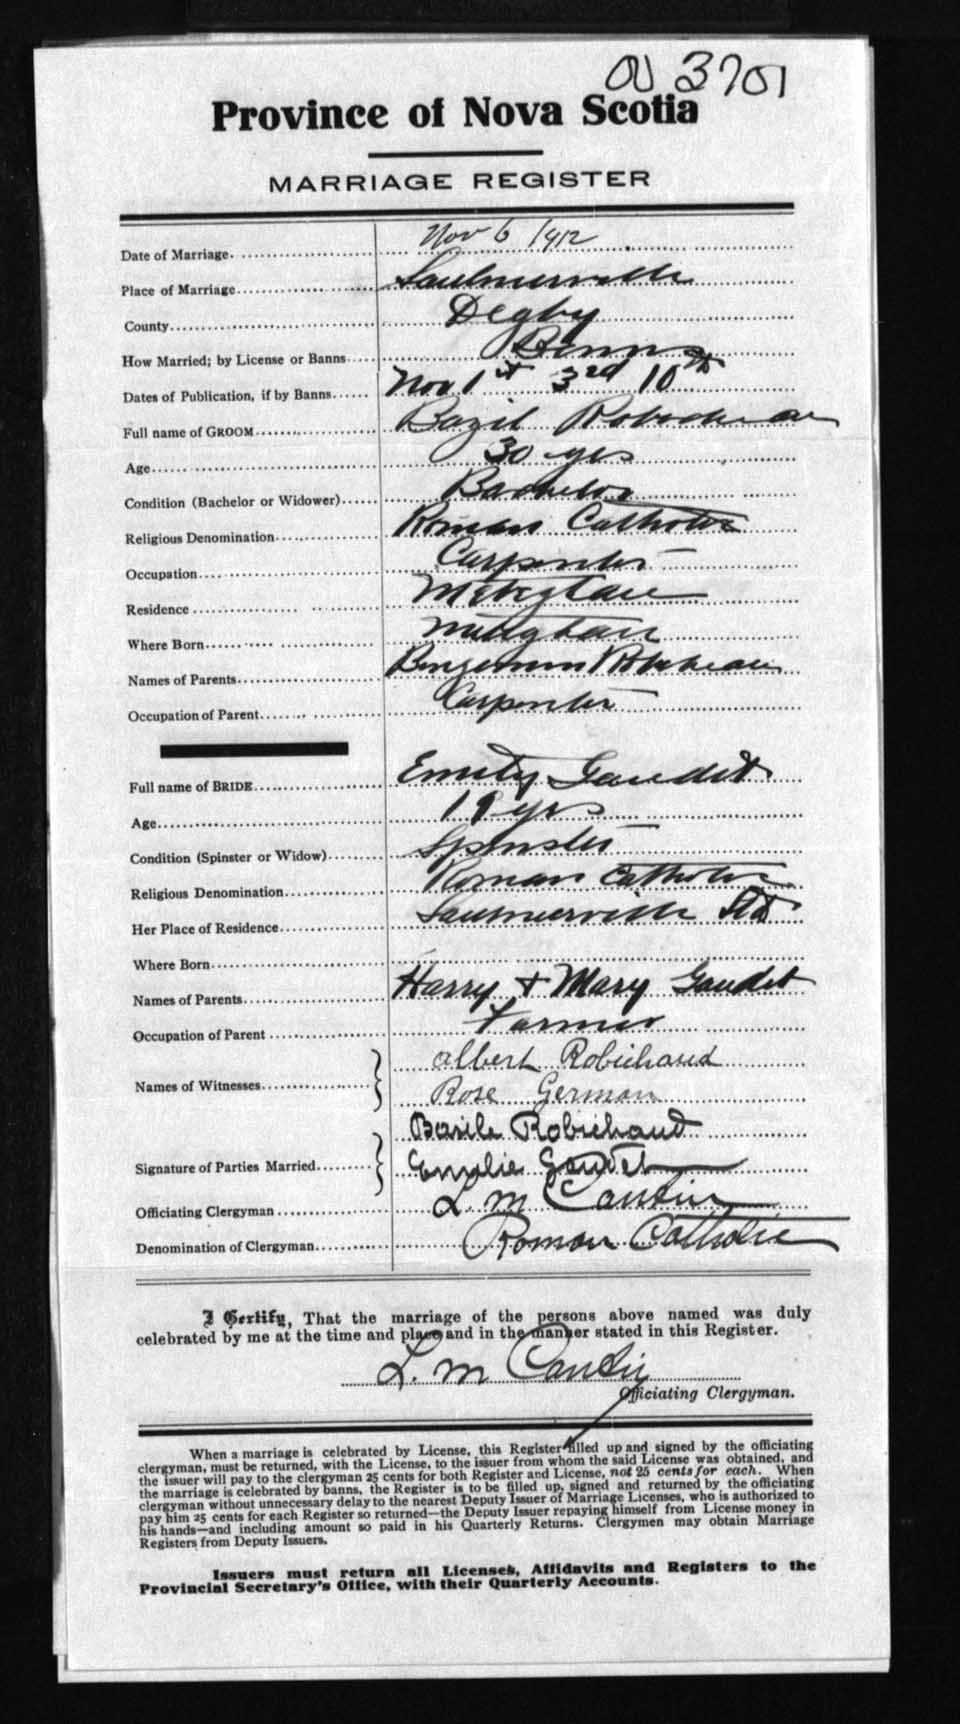 3701
Province of Nova Scotia
MARRIAGE REGISTER
Date of Marriage. Nov 6 1912
Place of Marriage Saulnierville
County Degby
How Married; by License or Banns Banns
Dates of Publication, if by Banns Nov 1st 3rd 10th
Full name of GROOM Bazil Robicheau
Age 30 yrs
Condition (Bachelor or Widower) Bachelor
Religious Denomination Roman Catholic
Occupation Carpenter
Residence Meteghan
Where Born Meteghan
Names of Parents Benjamin Robicheau
Occupation of Parent Carpenter
Full name of BRIDE Emily Gaudet
Age 19 yrs
Condition (Spinster or Widow) Spinster
Religious Denomination Roman Catholic
Her Place of Residence Saulnierville Std
Where Born
Names of Parents Harry + Mary Gaudet
Occupation of Parent Farmer
Names of Witnesses Albert Robichaud
Rose German
Signature of Parties Married Basile Robichaud
Emelie Gaudet
Officiating Clergyman L. M Cantin
Denomination of Clergyman Roman Catholic
I Certify, That the marriage of the persons above named was duly
celebrated by me at the time and place and in the manner stated in this Register.
L. M Cantin
Officiating Clergyman.
When a marriage is celebrated by License, this Register filled up and signed by the officiating
clergyman, must be returned, with the License, to the issuer from whom the said License was obtained, and
the issuer will pay to the clergyman 25 cents for both Register and License, not 25 cents for each. When
the marriage is celebrated by banns, the Register is to be filled up, signed and returned by the officiating
clergyman without unnecessary delay to the nearest Deputy Issuer of Marriage Licenses, who is authorized to
pay him 25 cents for each Register so returned—the Deputy Issuer repaying himself from License money in
his hands—and including amount so paid in his Quarterly Returns. Clergymen may obtain Marriage
Registers from Deputy Issuers.
Issuers must return all Licenses, Affidavits and Registers to the
Provincial Secretary's Office, with their Quarterly Accounts.